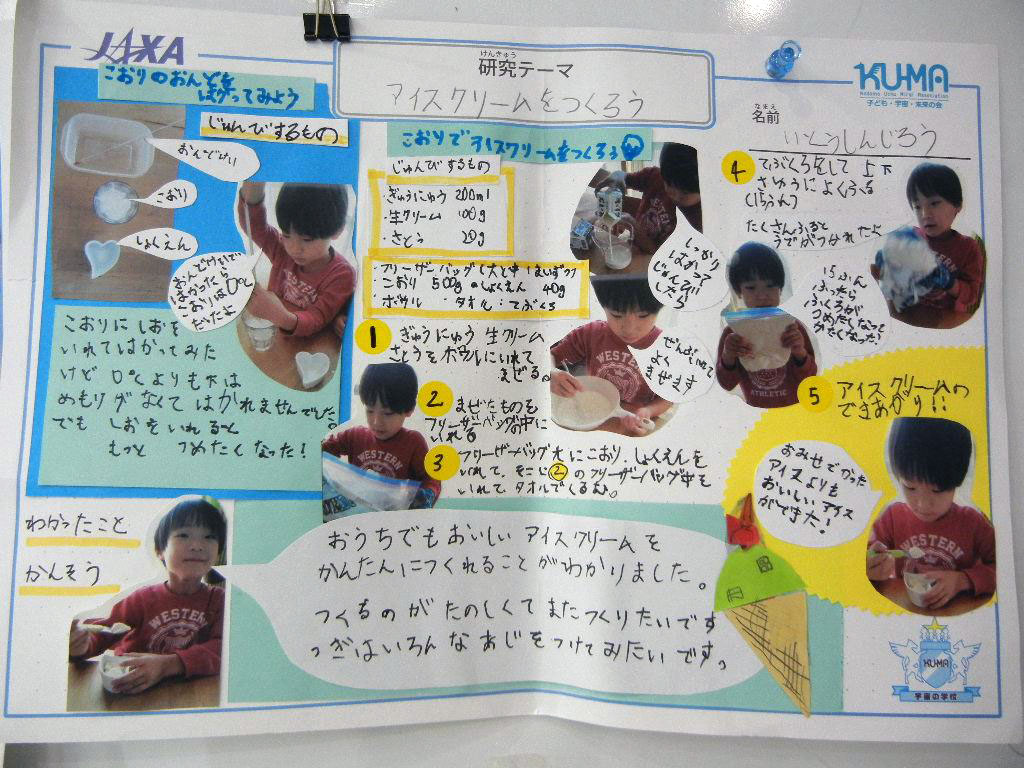 JAXA
けんきゅう
研究テーマ
アイスクリームをつくろう
KU-MA
Kodomo Uchu Mirai Association
子ども・宇宙・未来の会
なまえ
名前
いとうしんじろう
こおりのおんどを
はかってみよう
じゅんびするもの
おんどけい
こおり
しょくえん
おんどけいで
はかったら
こおりは0℃
だったよ
こおりにしおを
いれてはかってみた
けど 0℃よりも下は
めもりがなくてはかれませんでした。
でも しおをいれると
もっと つめたくなった!
こおりでアイスクリームをつくろう
じゅんびするもの
・ぎゅうにゅう 200ml
・生クリーム 100g
・さとう 20g
・フリーザーバッグ(大と中1まいずつ)
・こおり 500g ・しょくえん 40g
・ボウル ・タオル ・てぶくろ
しっかり
はかって
じゅんび
したら
1 ぎゅうにゅう 生クリーム
さとうをボウルにいれて
まぜる。
ぜんぶいれて
よく
まぜます
2 まぜたものを
フリーザーバッグの中に
いれる
3 フリーザーバッグ大にこおり、しょくえんを
いれて、そこに②のフリーザーバッグ中を
いれてタオルでくるむ。
4 てぶくろをして 上下
さゆうに よくふる
(15ふん)
たくさんふると
うでがつかれたよ
15ふん
ふったら
ふくろが
つめたくなって
かたくなった!
5 アイスクリームの
できあがり!!
おみせでかった
アイスよりも
おいしいアイス
ができた!
わかったこと
かんそう
おうちでもおいしい アイスクリームを
かんたんにつくれることがわかりました。
つくるのがたのしくてまたつくりたいです
つぎはいろんなあじをつけてみたいです。
KU-MA
宇宙の学校